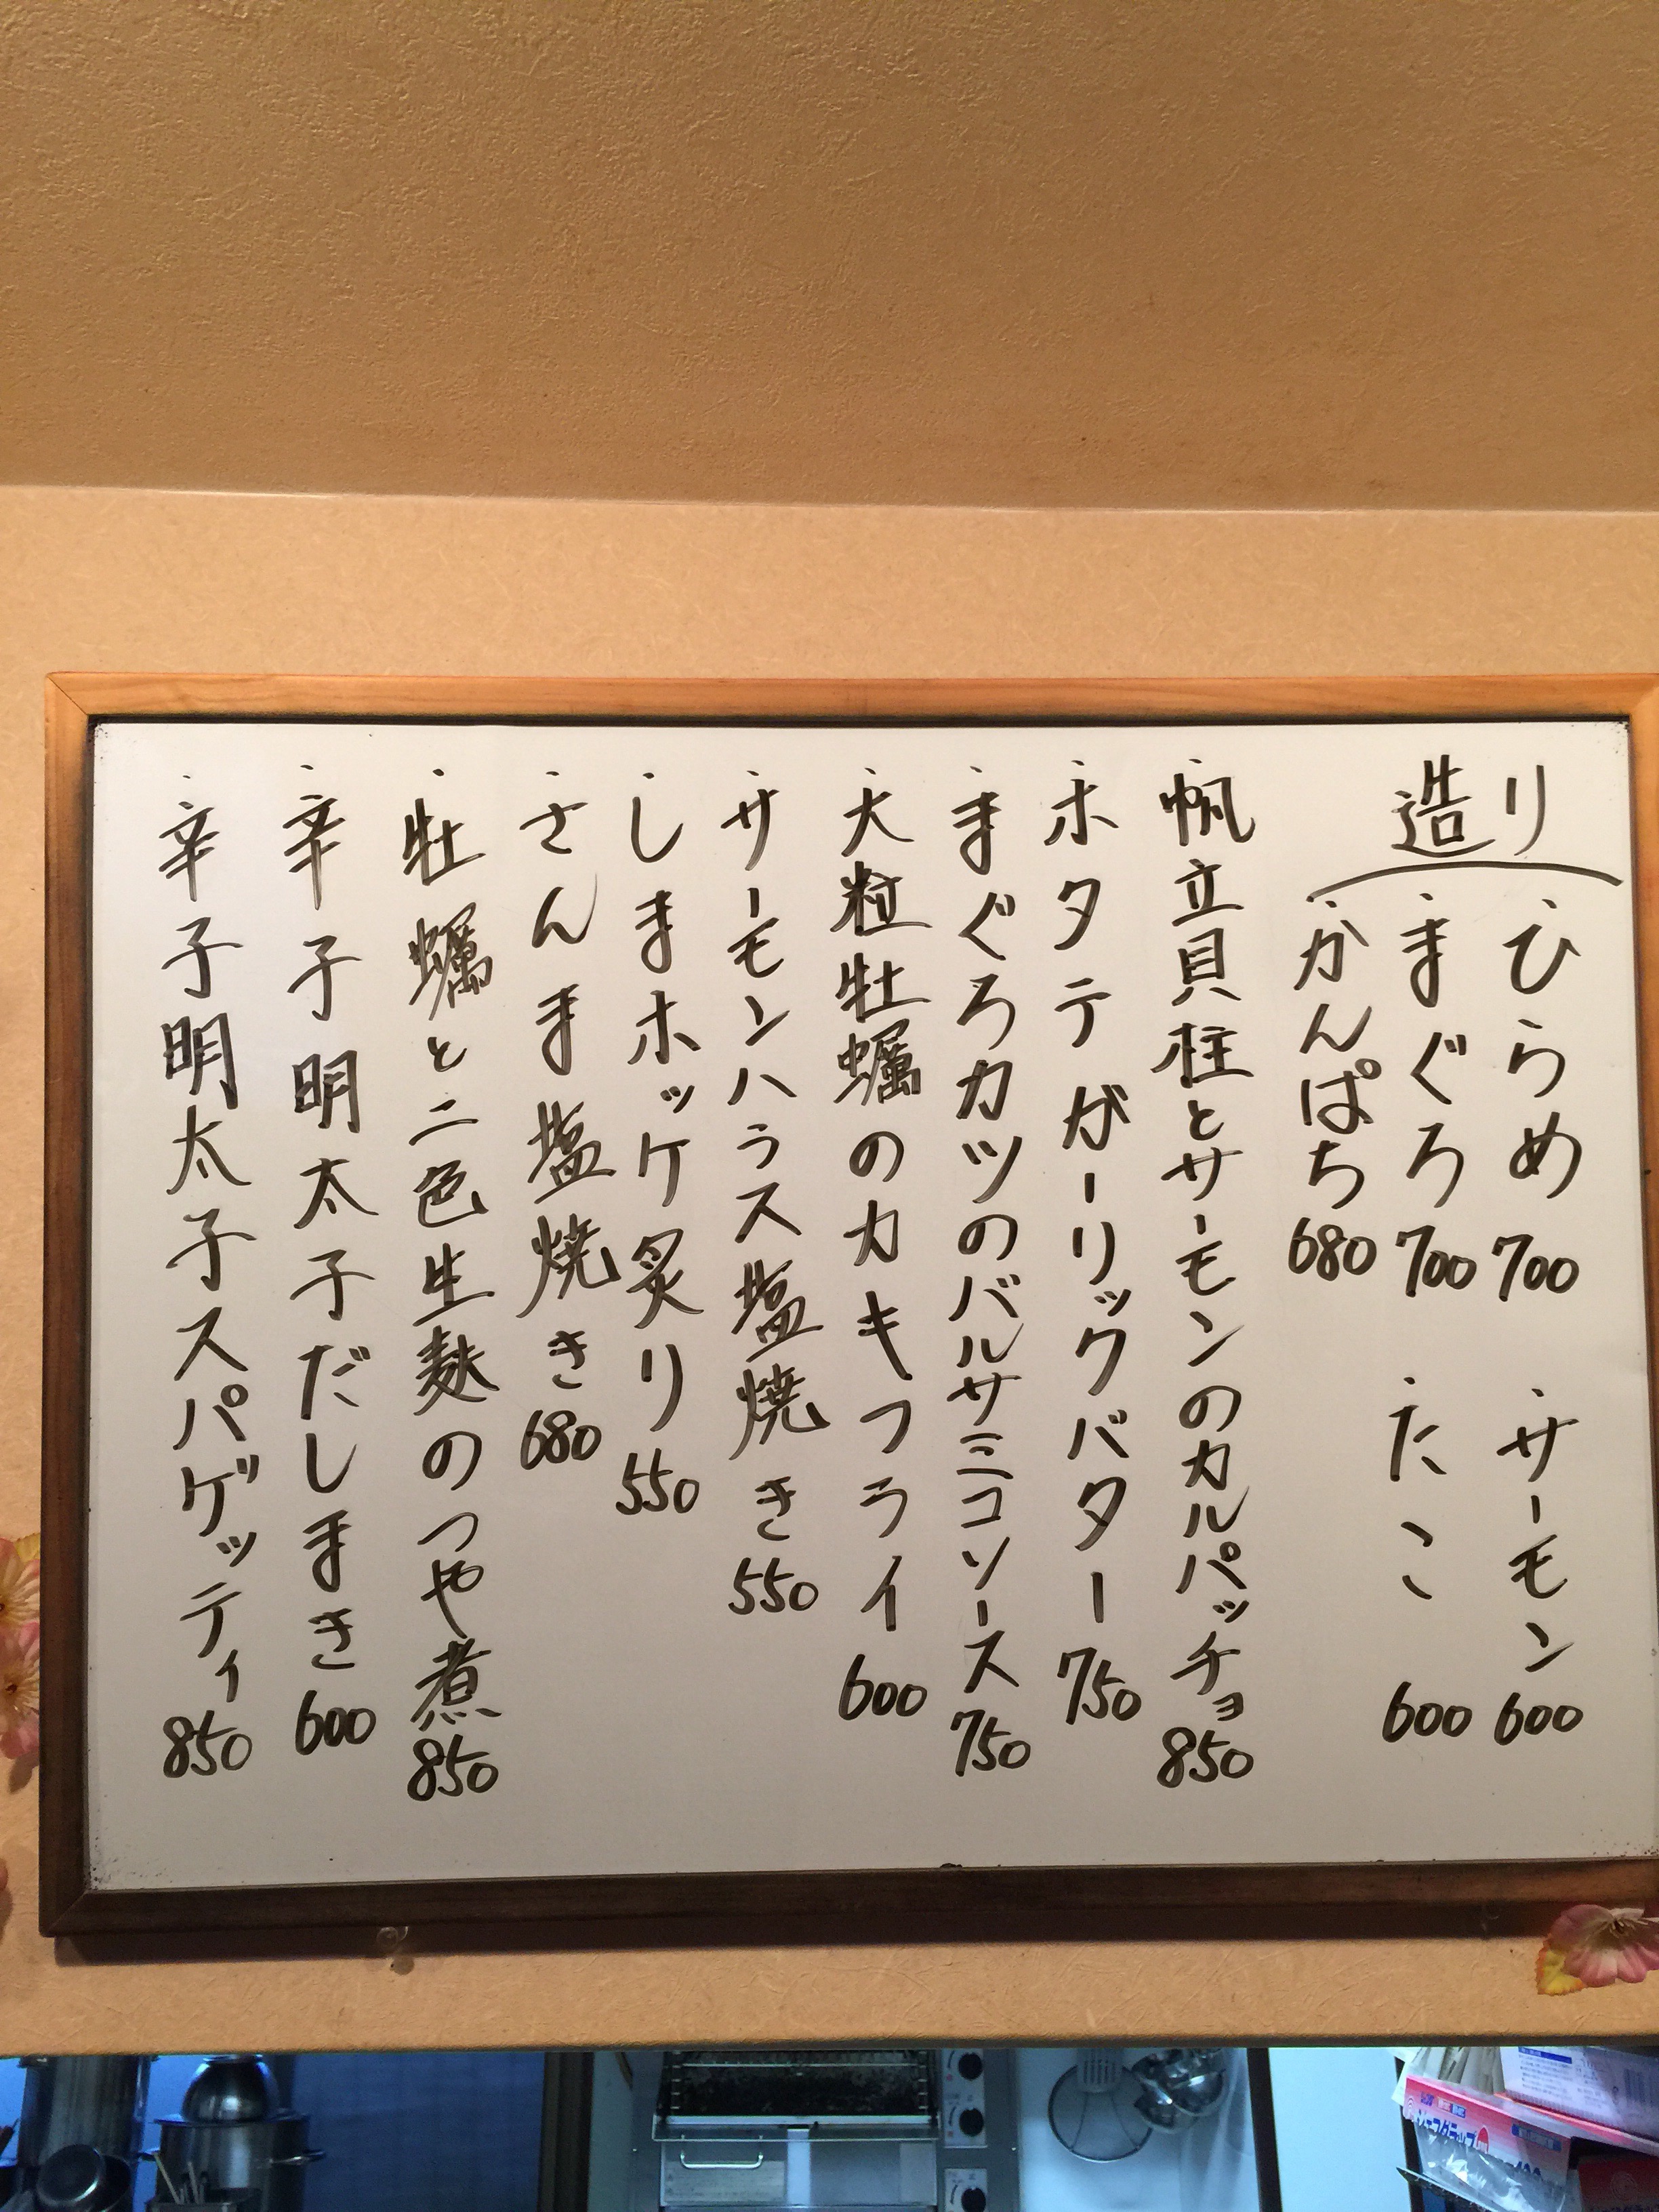 造り
・ひらめ 700 ・サーモン 600
・まぐろ 700 ・たこ 600
・かんぱち 680
・帆立貝柱とサーモンのカルパッチョ 850
・ホタテガーリックバター 750
・まぐろカツのバルサミコソース 750
・大粒牡蠣のカキフライ 600
・サーモンハラス塩焼き 550
・しまホッケ炙り 550
・さんま塩焼き 680
・牡蠣と二色生麩のつや煮 850
・辛子明太子だしまき 600
・辛子明太子スパゲッティ 850